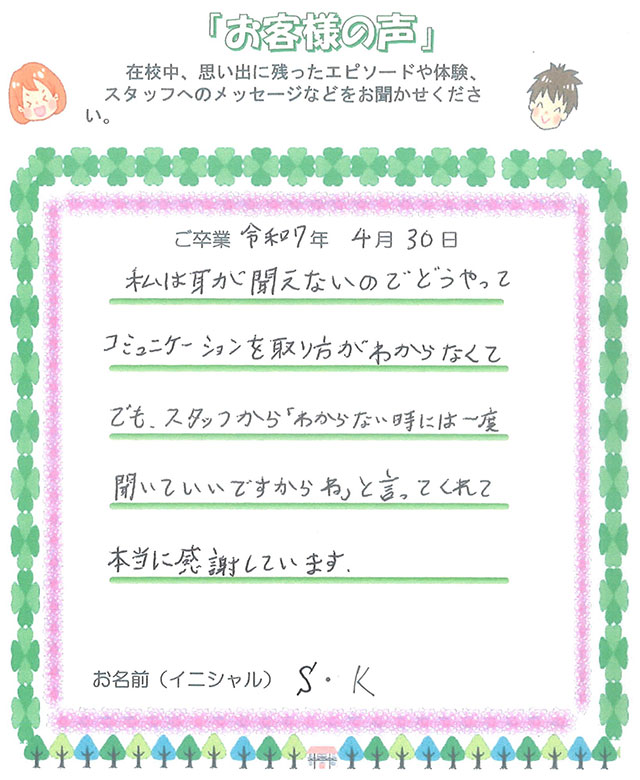 「お客様の声」
在校中、思い出に残ったエピソードや体験、
スタッフへのメッセージなどをお聞かせくださ
い。
ご卒業 令和7年 4月30日
私は耳が聞えないのでどうやって
コミュニケーションを取り方がわからなくて
でも、スタッフから「わからない時には一度
聞いていいですからね」と言ってくれて
本当に感謝しています.
お名前（イニシャル） S・K